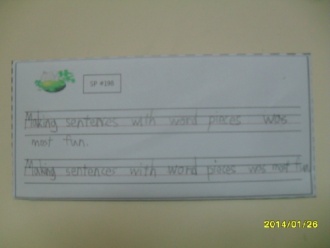 SP #396
Making sentences with word pieces was
most fun.
Making sentences with word pieces was most fun
2014/01/26